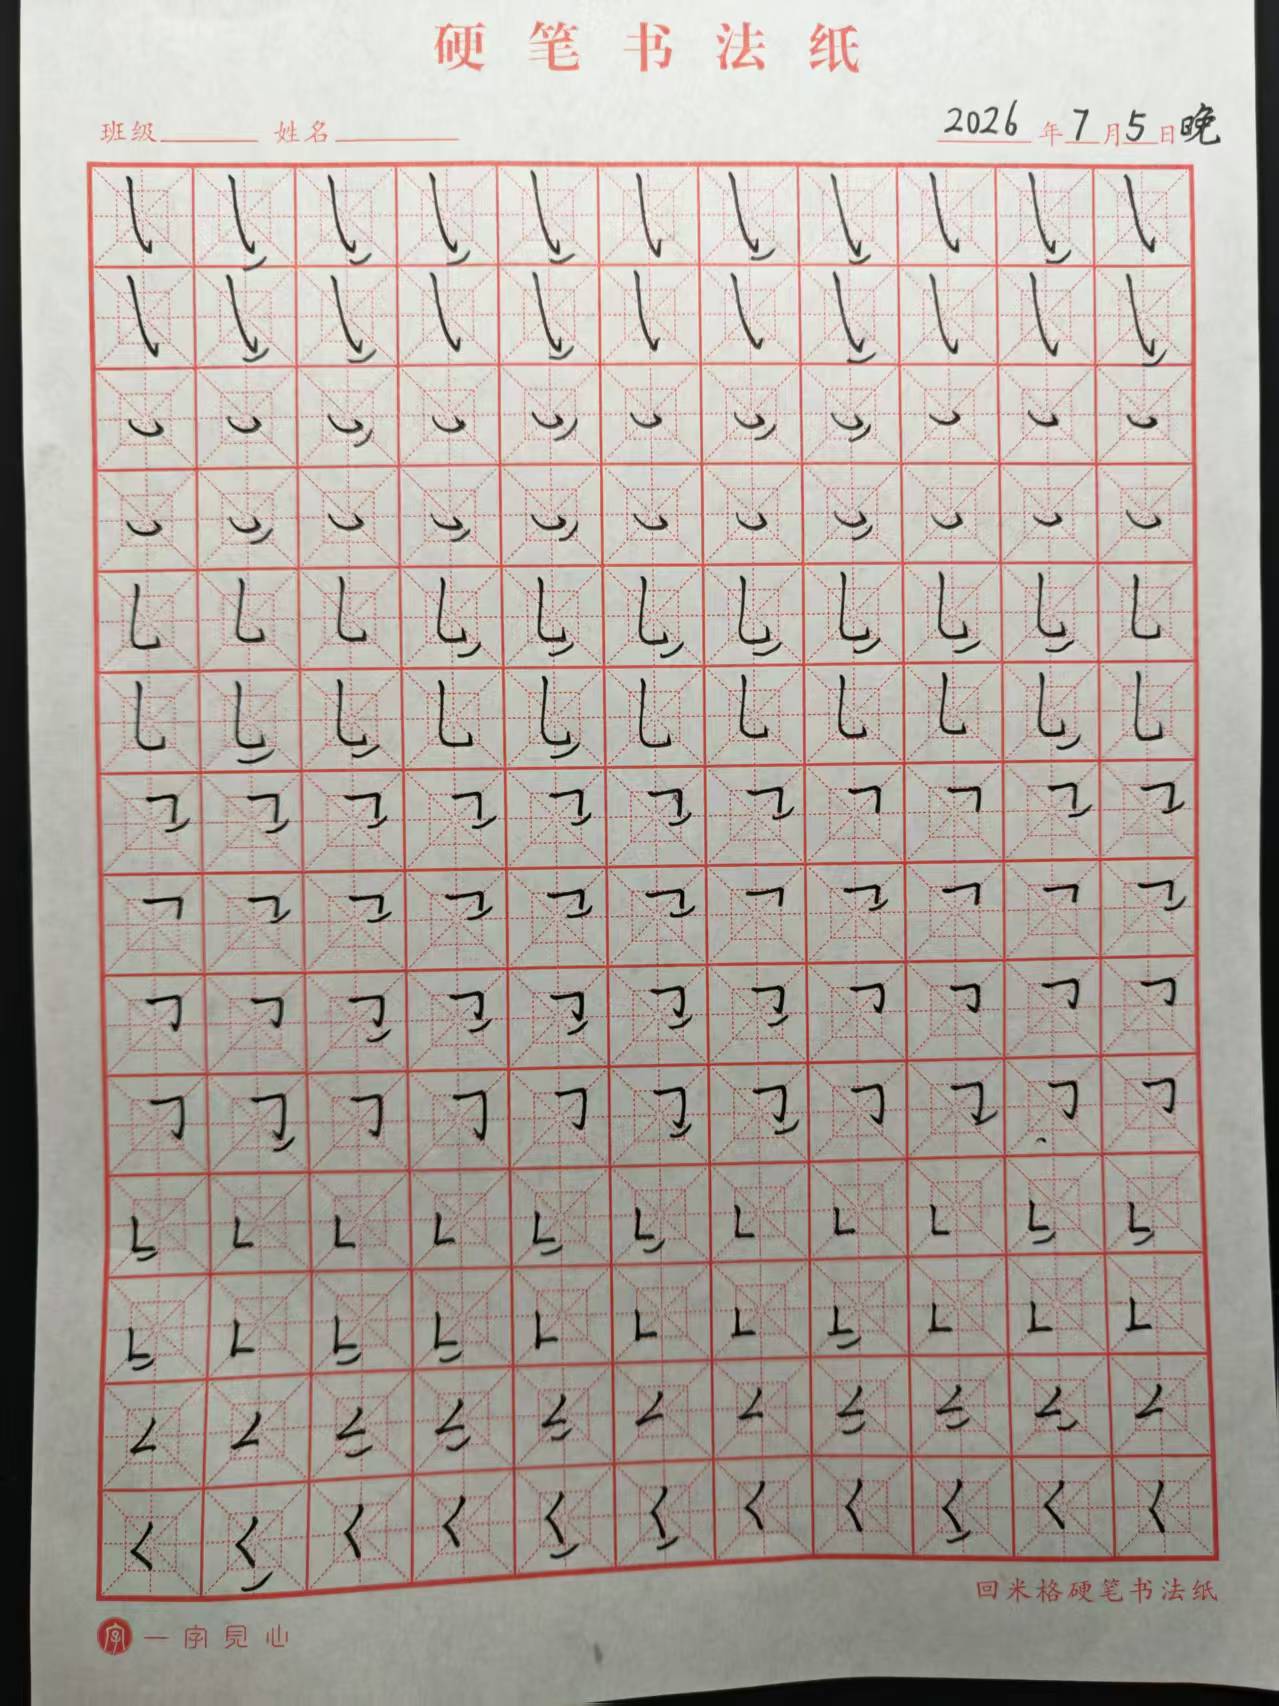 硬笔书法纸
班级 姓名 2026年7月5日晚
回米格硬笔书法纸
字 一字見心